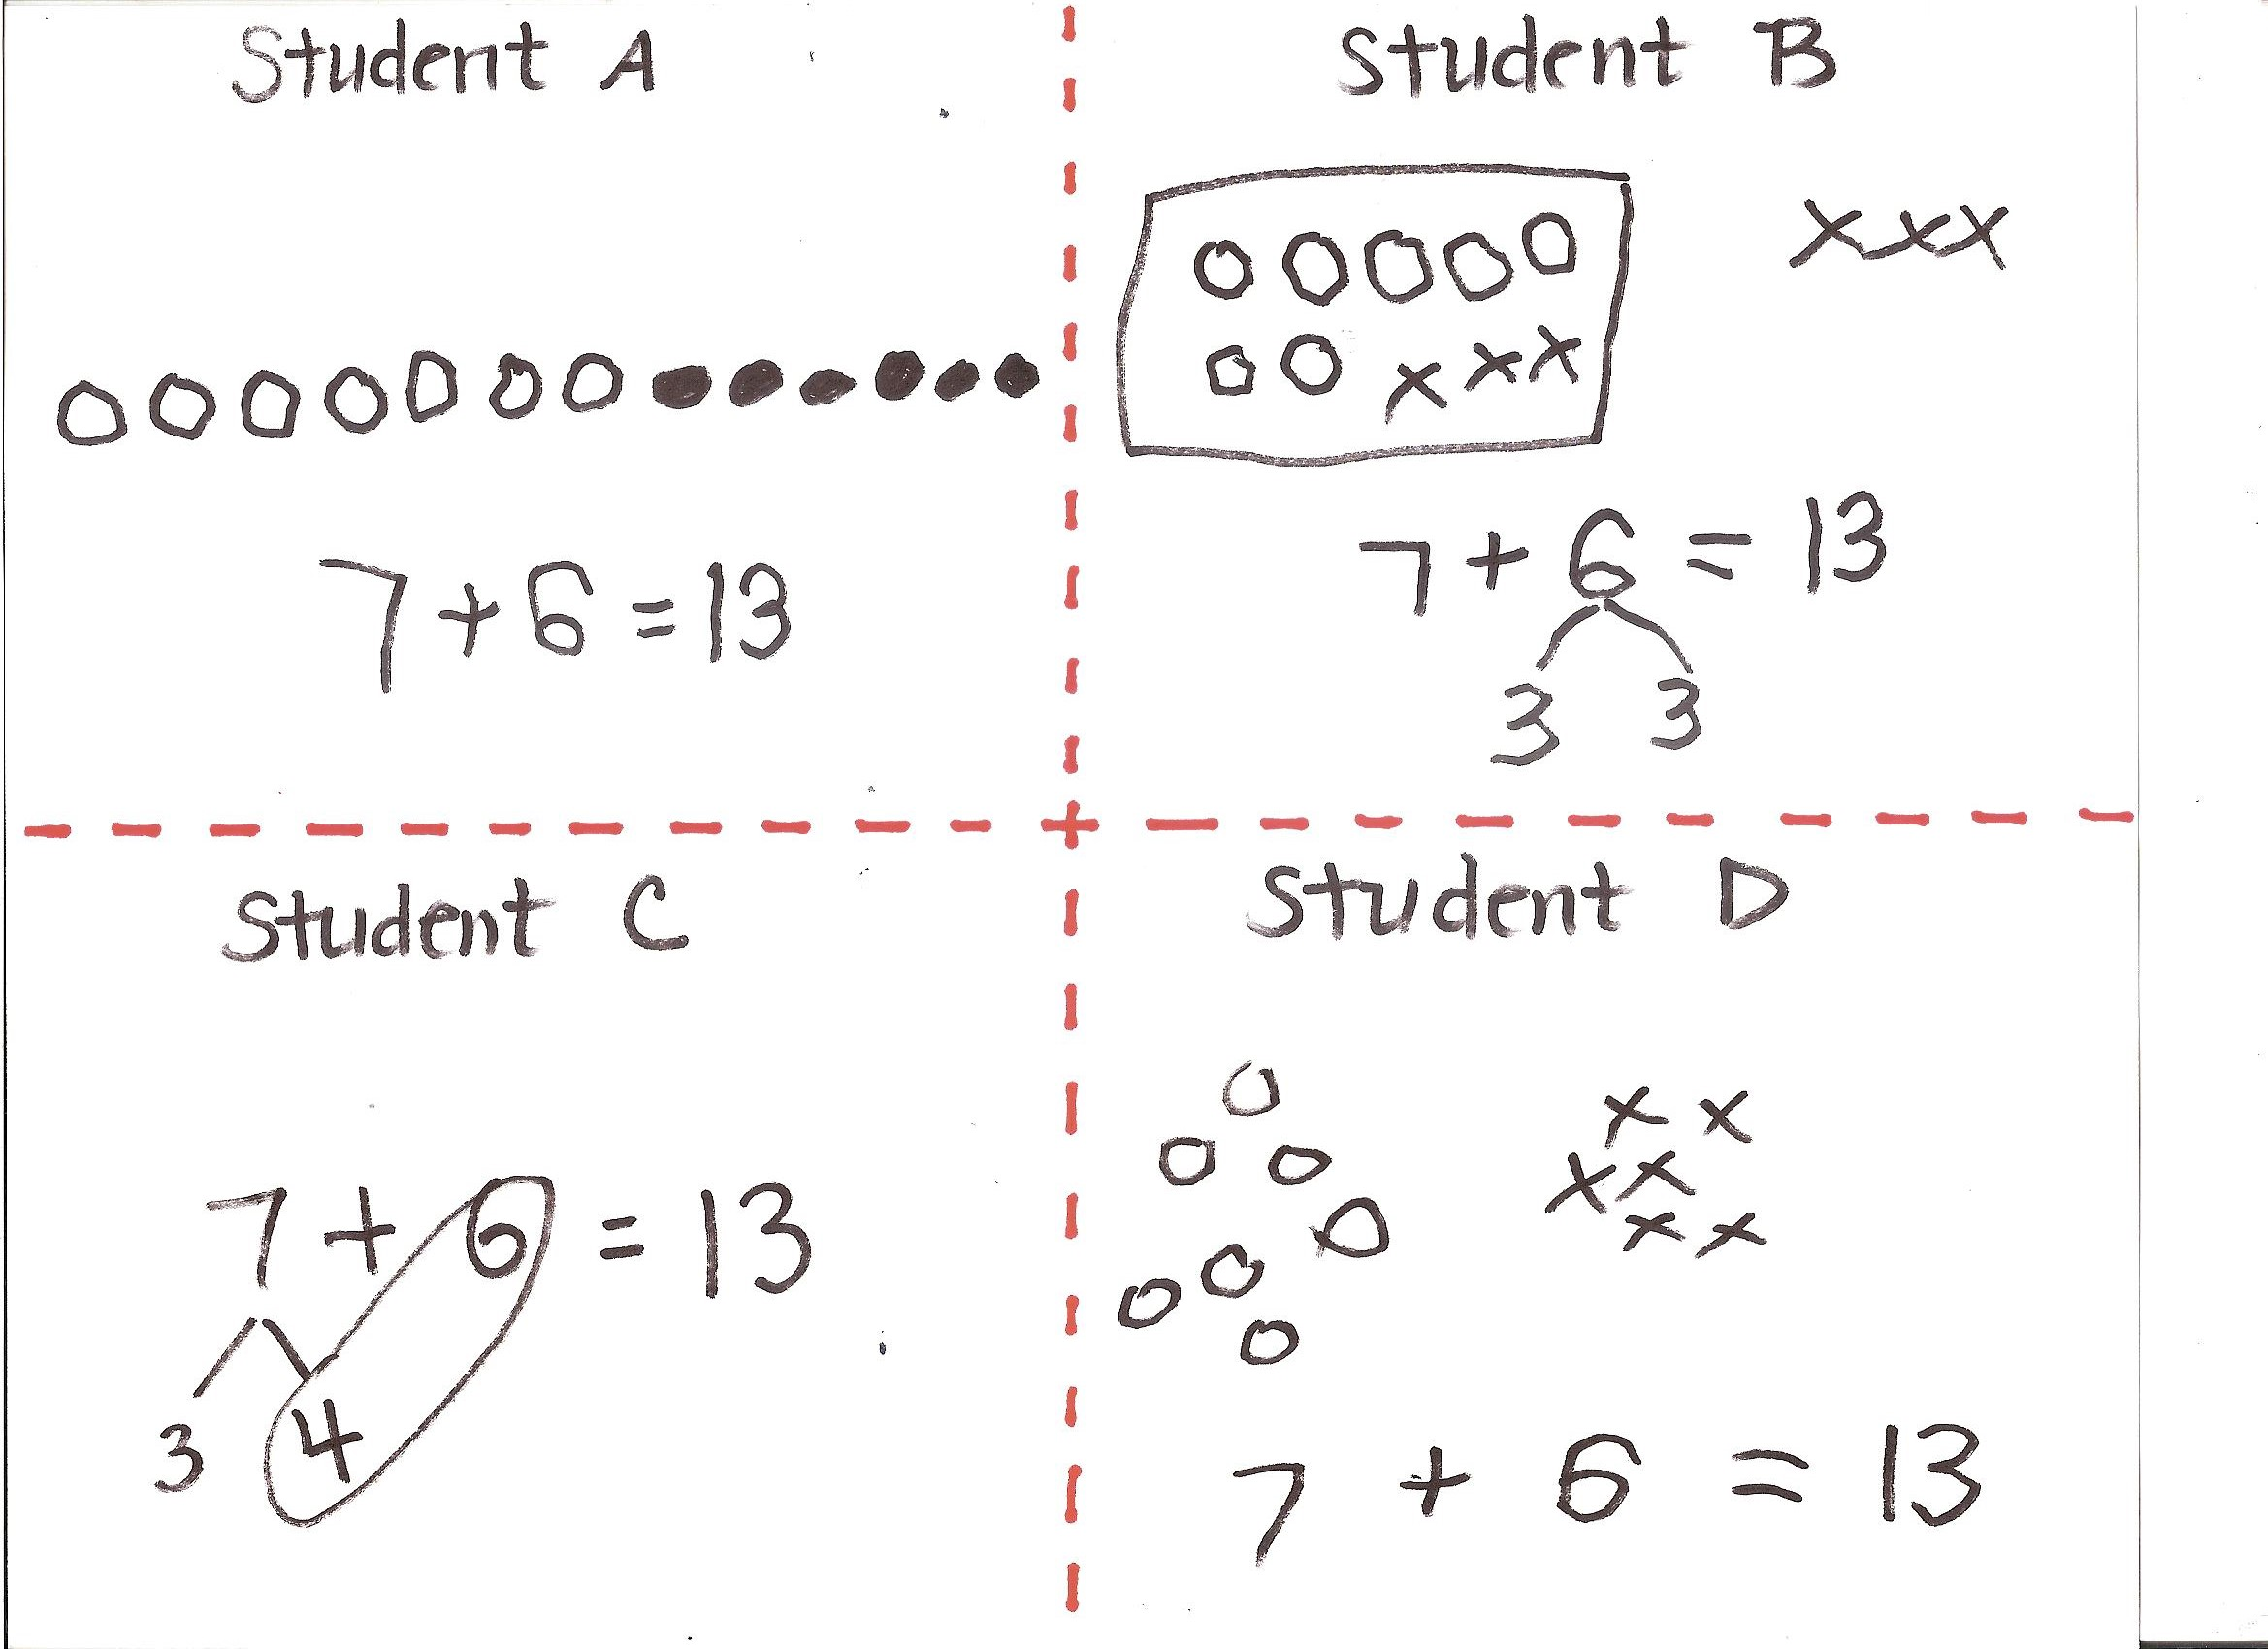 Student A
7 + 6 = 13
Student B
xxx
xxx
7 + 6 = 13
3 3
Student C
7 + 6 = 13
3 4
Student D
x x
x x
x x
7 + 6 = 13